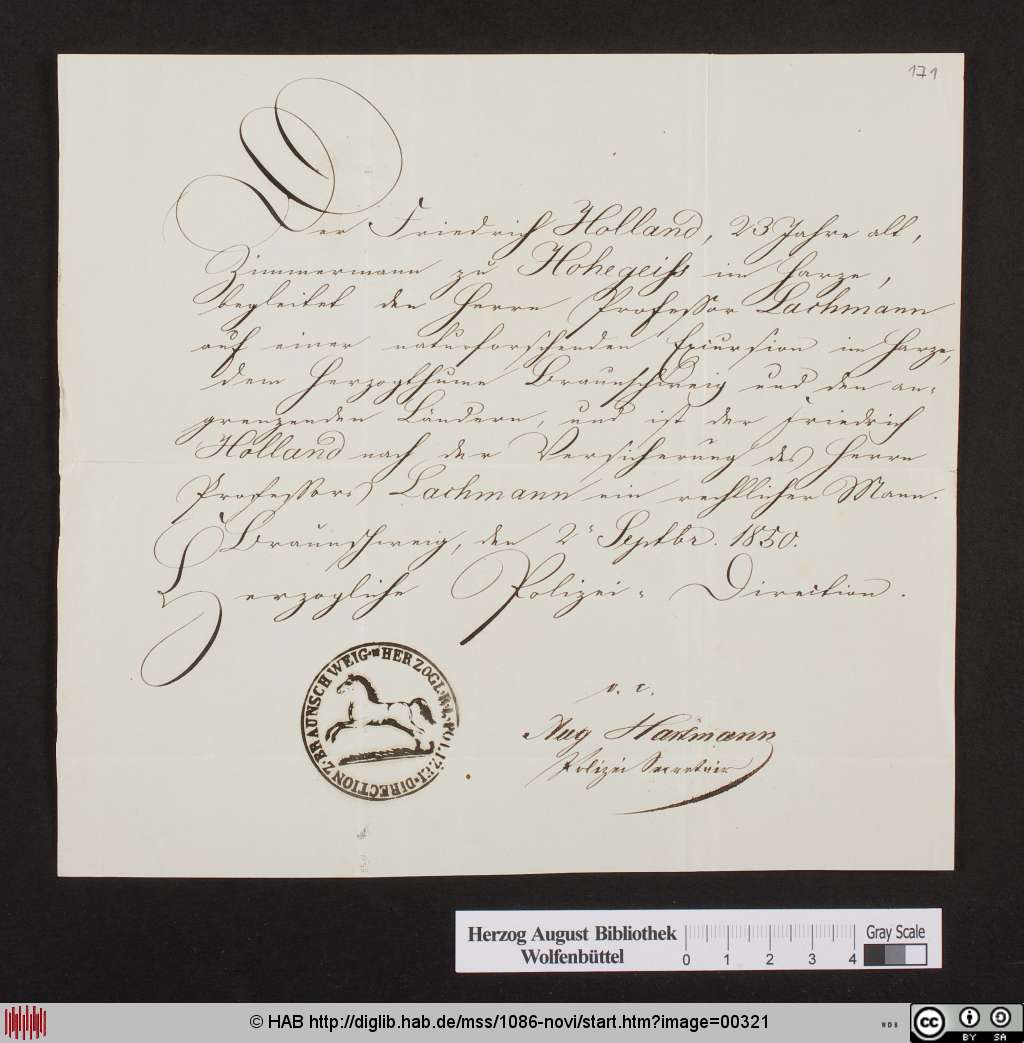 171
Der Friedrich Holland, 23 Jahre alt,
Zimmermann zu Hohegeiss im Harze,
begleitet den Herrn Professor Lachmann
auf einer naturforschenden Excursion im Harze,
dem Herzogthume Braunschweig und den an-
grenzenden Ländern, und ist der Friedrich
Holland nach der Versicherung des Herrn
Professors Lachmann ein rechtlicher Mann.
Braunschweig, den 2n Septbr. 1850.
Herzogliche Polizei-Direction.
HERZOGL. POLIZEI-DIRECTION Z. BRAUNSCHWEIG
v. c.
Aug Hartmann
Polizei Secretair
Herzog August Bibliothek
Wolfenbüttel
0 1 2 3 4
Gray Scale
© HAB http://diglib.hab.de/mss/1086-novi/start.htm?image=00321
WDB
cc
BY SA